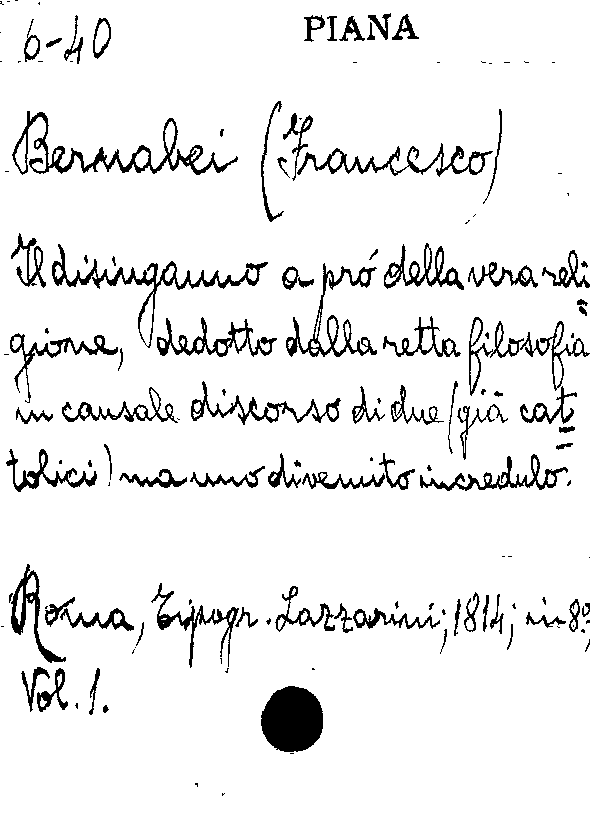 6-40
PIANA
Bernabei (Francesco)
Il disinganno a pró della vera reli=
gione, dedotto dalla retta filosofia
in causale discorso di due (già cat=
tolici) ma uno divenuto incredulo.
Roma, Tipogr. Lazzarini; 1814; in 8º;
Vol. 1.